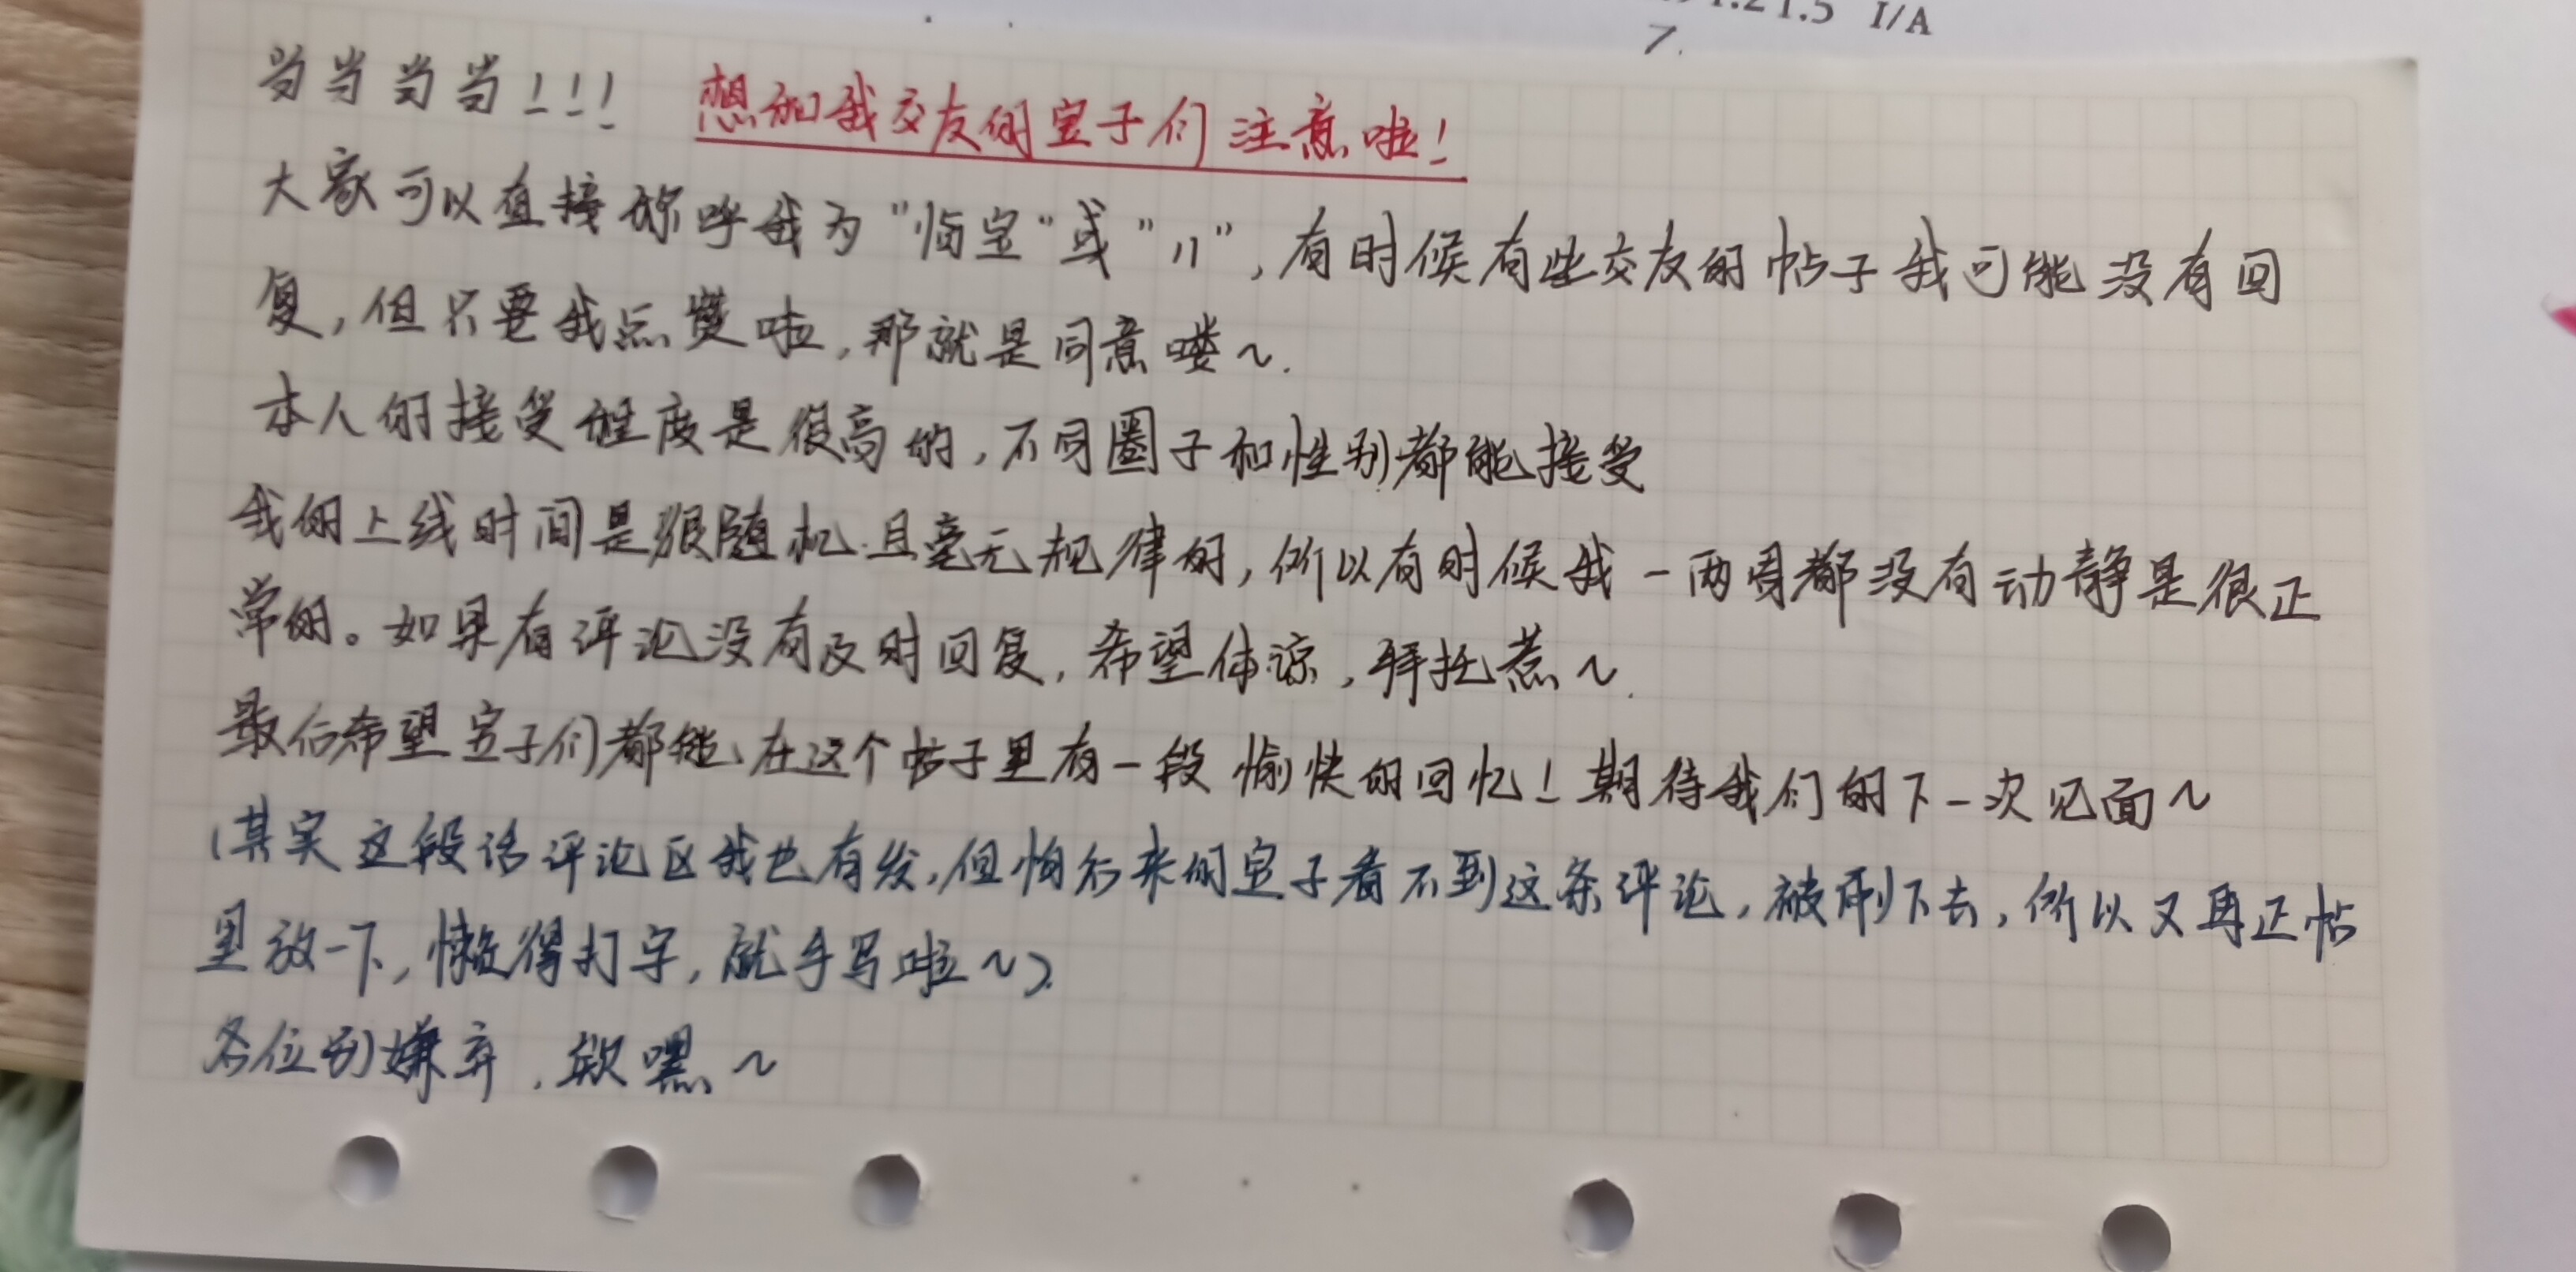 I/A
7.
当当当当!!! 想和我交友的宝子们注意啦!
大家可以直接称呼我为"恼宝"或"八",有时候有些交友的帖子我可能没有回
复,但只要我点赞啦,那就是同意喽~.
本人的接受程度是很高的,不同圈子和性别都能接受
我的上线时间是很随机且毫无规律的,所以有时候我一两周都没有动静是很正
常的。如果有评论没有及时回复,希望体谅,拜托惹~.
最后希望宝子们都能在这个帖子里有一段愉快的回忆!期待我们的下一次见面~
(其实这段话评论区我也有发,但怕后来的宝子看不到这条评论,被刷下去,所以又再正帖
里放一下,懒得打字,就手写啦~)
各位别嫌弃,欸嘿~